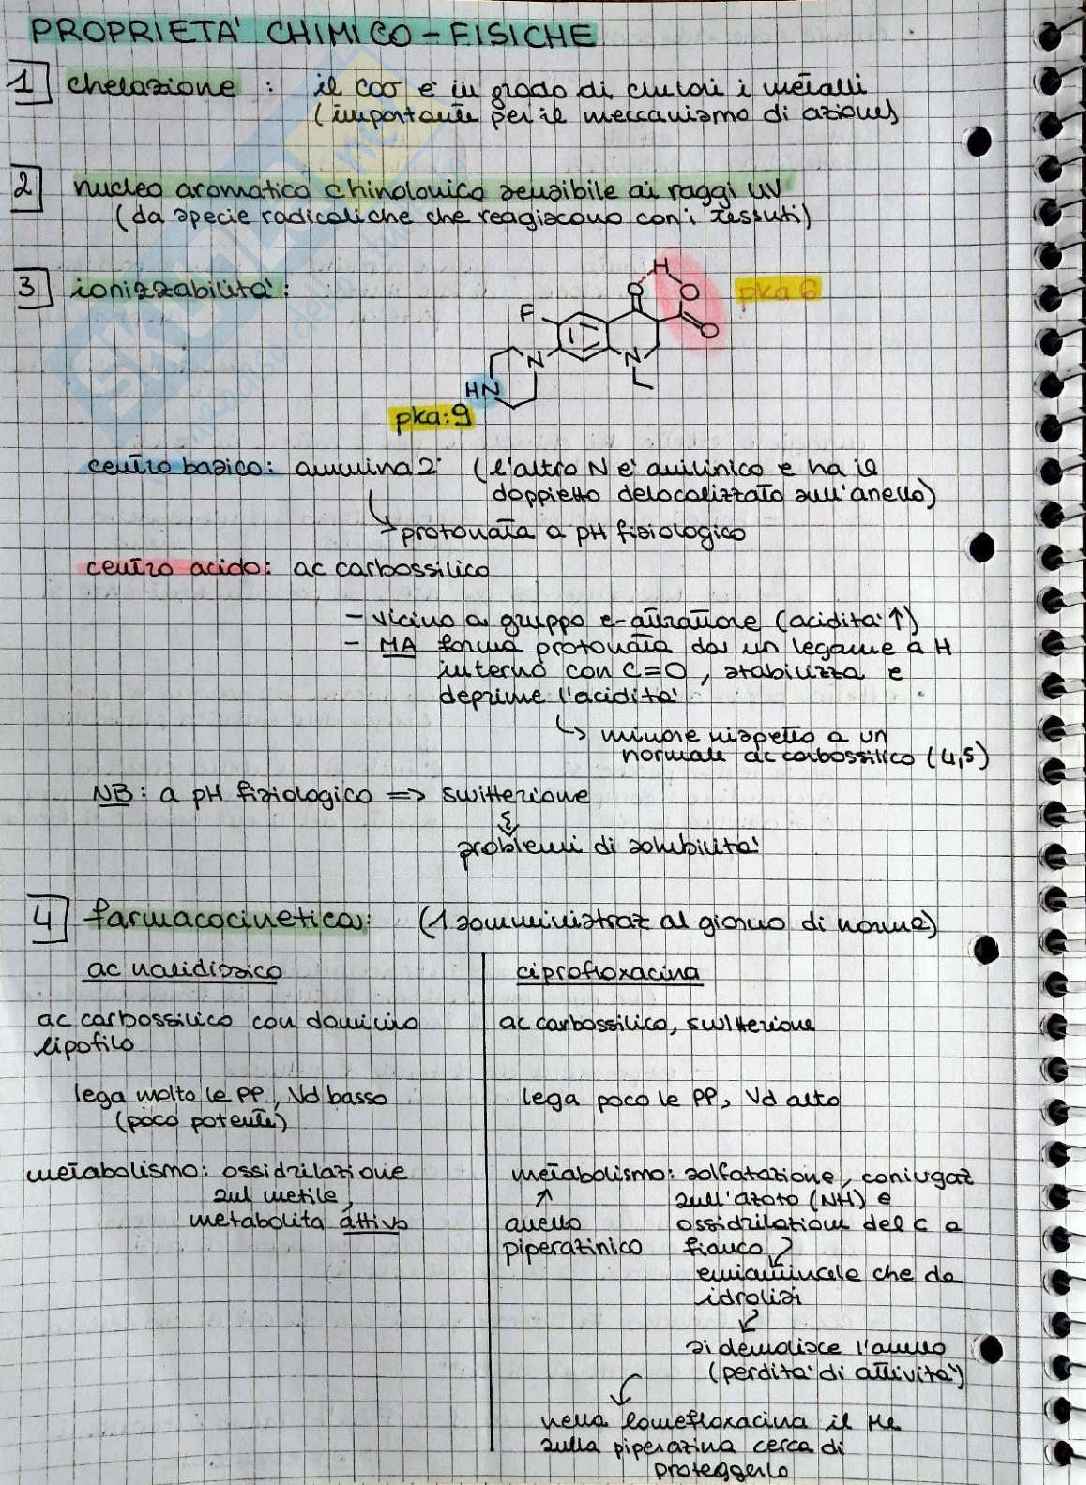 PROPRIETA' CHIMICO-FISICHE
1 chelazione : il COO⁻ è in grado di chelare i metalli
(importante per il meccanismo di azione)
2 nucleo aromatico chinolonico sensibile ai raggi UV
(da specie radicaliche che reagiscono con i tessuti)
3 ionizzabilità:
H
O
O
pka 6
F
O
N
N
HN
pka:9
centro basico: ammina 2° (l'altro N è anilinico e ha il
doppietto delocalizzato sull'anello)
protonata a pH fisiologico
centro acido: ac carbossilico
- vicino a gruppo e-attrattore (acidità ↑)
- MA forma protonata dà un legame a H
interno con C=O, stabilizza e
deprime l'acidità
↳ minore rispetto a un
normale ac carbossilico (4,5)
NB: a pH fisiologico => switterione
problemi di solubilità
4 farmacocinetica: (1 somministraz al giorno di norma)
ac nalidissico
ciprofloxacina
ac carbossilico con dominio
lipofilo
ac carbossilico, switterione
lega molto le PP, Vd basso
(poco potente)
lega poco le PP, Vd alto
metabolismo: ossidrilazione
sul metile,
metabolita attivo
metabolismo: solfatazione, coniugaz
↑ sull'azoto (NH) e
anello ossidrilazione del C a
piperazinico fianco
emiaminale che dà
idrolisi
si demolisce l'anello
(perdita di attività)
nella lomefloxacina il Me
sulla piperazina cerca di
proteggerlo